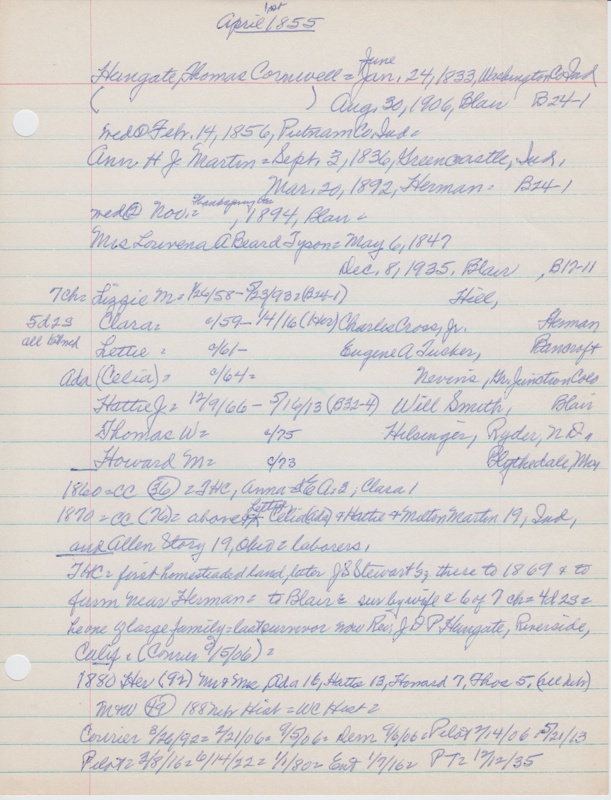 1st
April 1855
Hungate, Thomas Cornwell = June Jan. 24, 1833, Washington Co Ind
( ) Aug. 30, 1906, Blair B24-1
med ① Feb. 14, 1856, Putnam Co, Ind =
Ann H J Martin = Sept. 3, 1836, Greencastle, Ind,
Mar. 20, 1892, Herman = B24-1
med ② Nov. = Thanksgiving , 1894, Blair =
Mrs Louvena A Beard Tyson = May 6, 1847
Dec. 8, 1935, Blair , B17-11
7 ch = Lizzie M = 1/26/58 - 8/23/93 = (B24-1) Hill,
5d 2s Clara = c/59 - 1/4/16 (Her) Charles Cross, Jr. Herman
all Lettie = c/61 - Eugene A Tucker, Bancroft
Ada (Celia) = c/64 = Nevins, Gr Junction Colo
Hattie J = 12/9/66 - 5/16/13 (B32-4) Will Smith, Blair
Thomas W = c/75 Helsinger, Ryder, N D
Howard M = c/73 Blythedale,
1860 = CC (36) = THC, Anna = E A = 2, Clara 1
1870 = CC = above Lettie Celia (Ada) & Hattie & Milton Martin 19, Ind,
and Allen Story 19, Ohio = laborers,
THC = first homesteaded land, later J S Stewart's, there to 1869 & to
farm near Herman = to Blair = sur by wife & 6 of 7 ch = 4d 2s =
he one of large family = last survivor now Rev. J D P Hungate, Riverside,
Calif. (Courier 9/15/06) =
1880 Her (92) Mr & Mrs, Ada 16, Hattie 13, Howard 7, Thos 5, (all Nebr)
M & W (49) 188 Nebr Hist = WC Hist =
Courier 3/26/92 = 2/21/06 = 9/5/06 = Dem 9/6/06 = Pilot 2/14/06 5/21/13
Pilot = 3/8/16 = 6/14/22 = 1/1/80 = Ent 1/7/16 = PT = 12/12/35